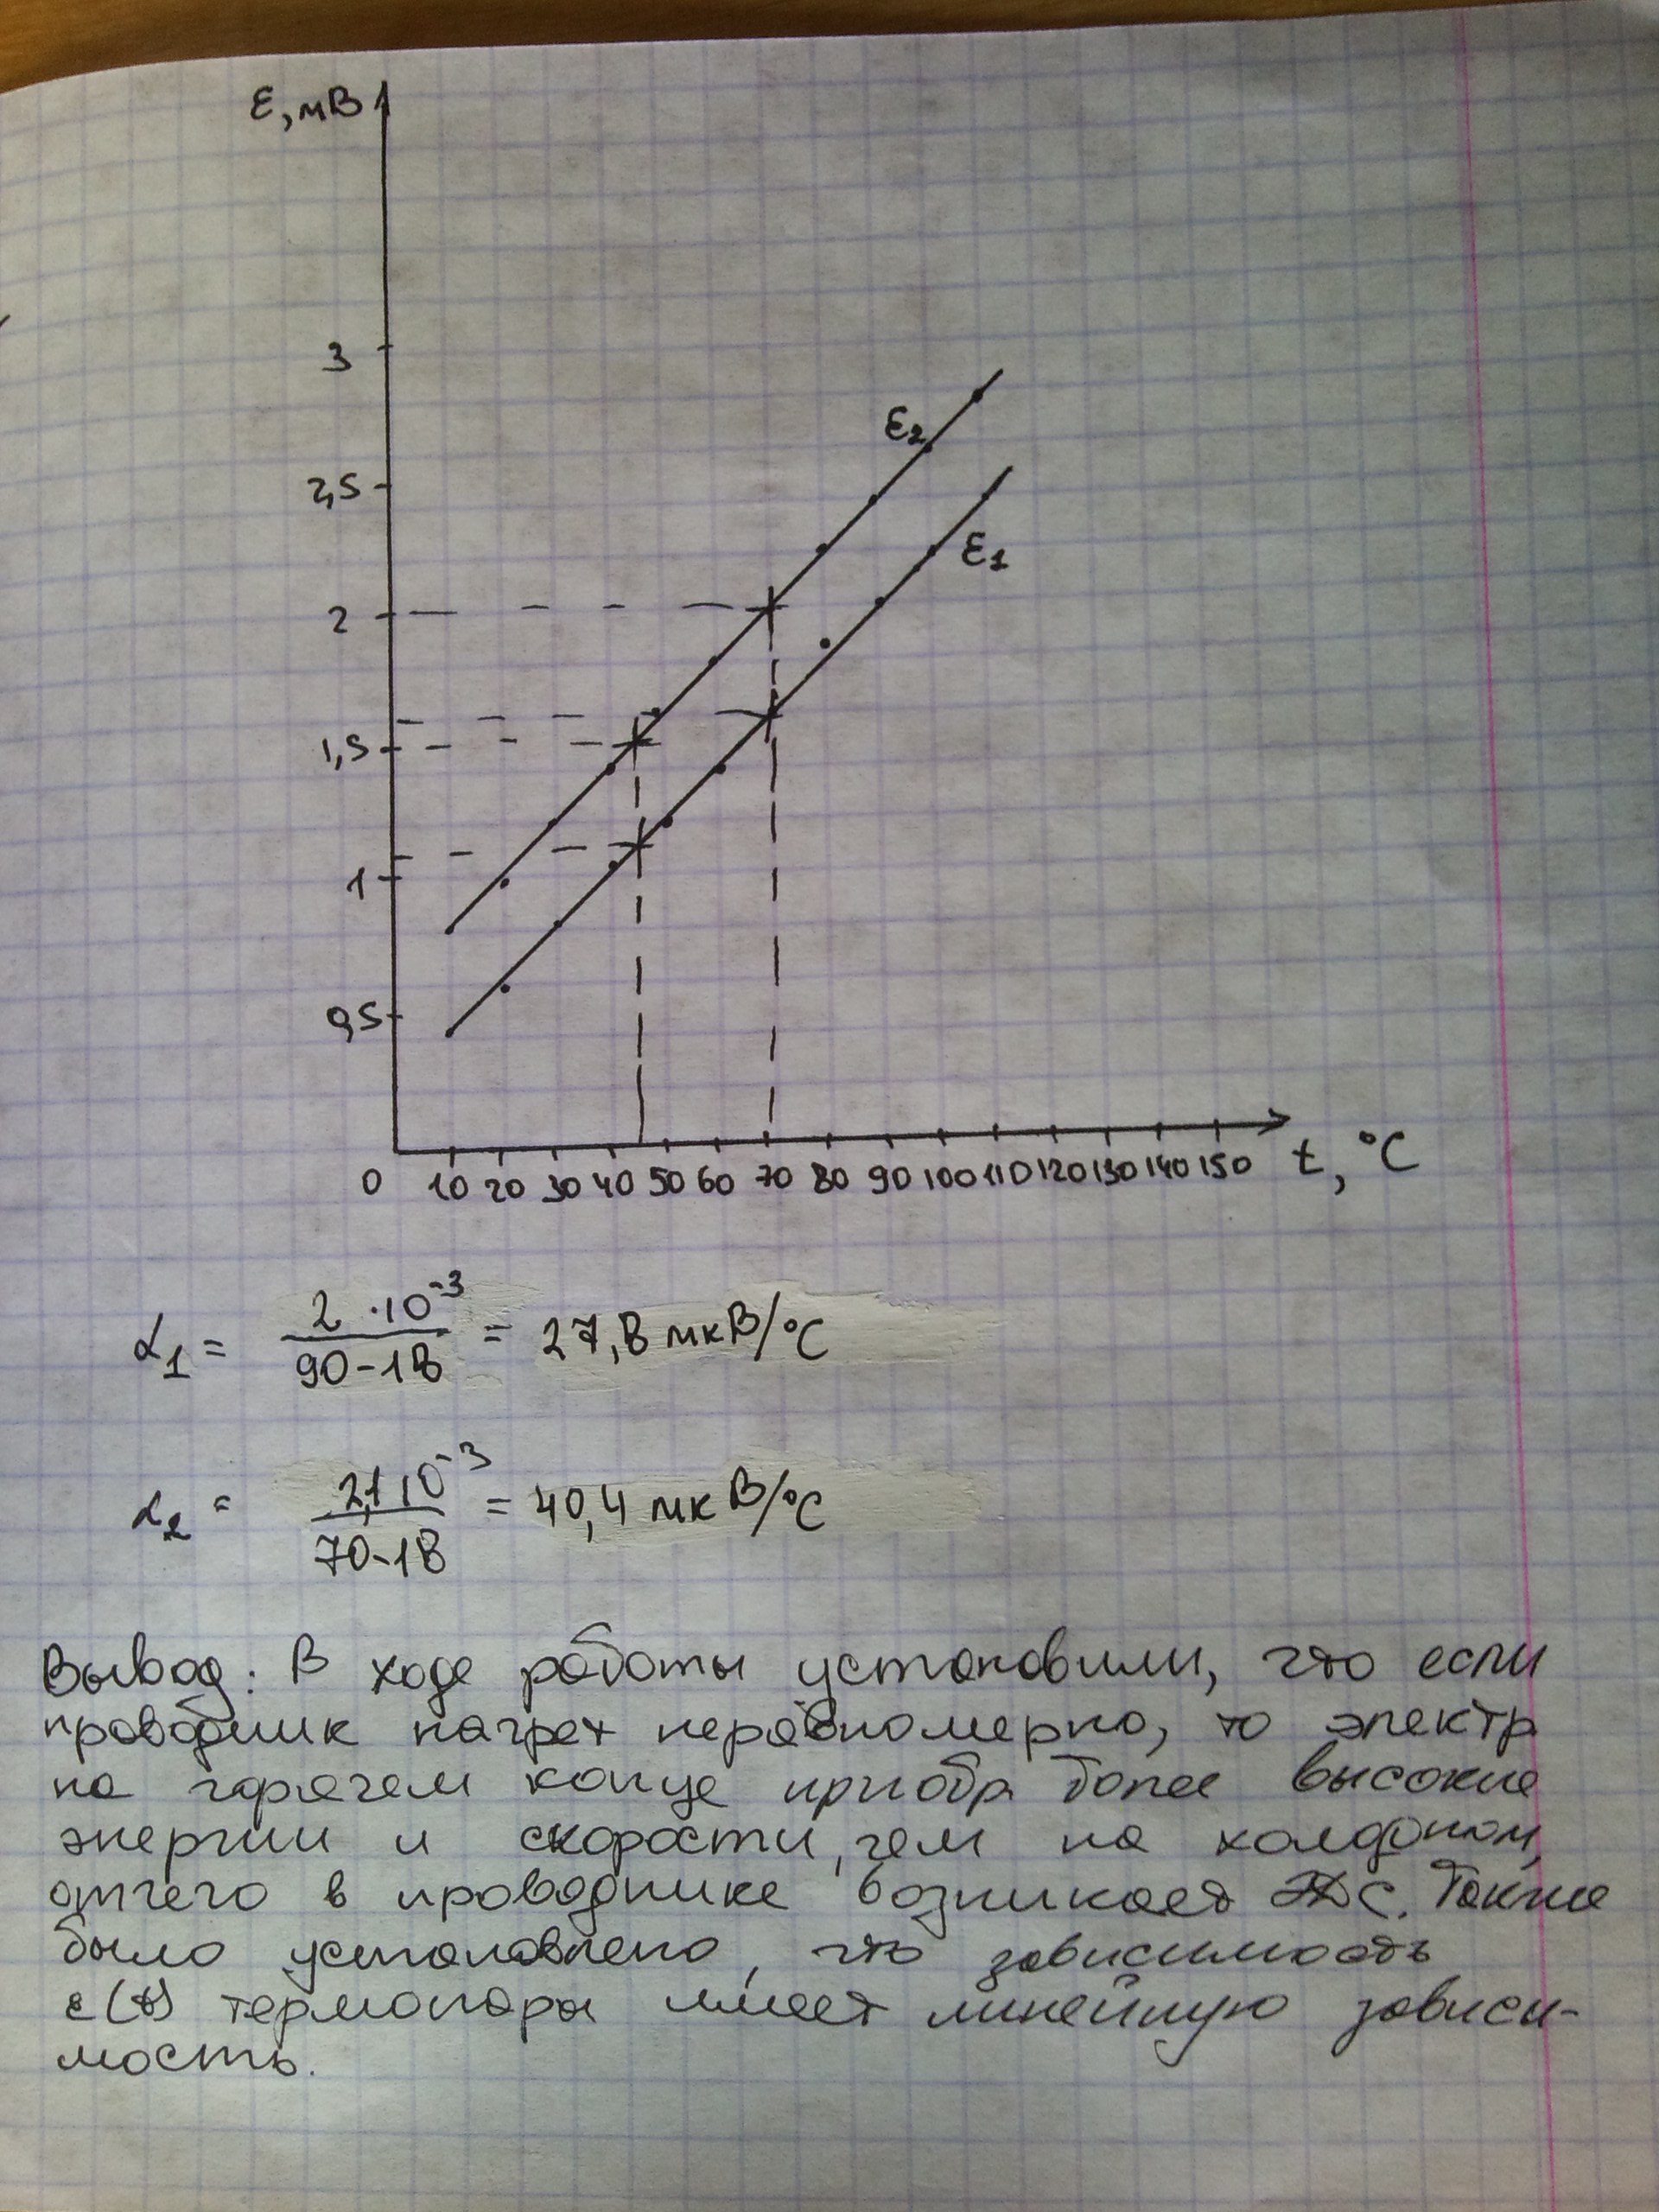 ε, мВ
3
ε₂
2,5
ε₁
2
1,5
1
0,5
0 10 20 30 40 50 60 70 80 90 100 110 120 130 140 150 t, °C
α₁ = 2 · 10⁻³ / 90-18 = 27,8 мкВ/°C
α₂ = 2,1 10⁻³ / 70-18 = 40,4 мкВ/°C
Вывод: В ходе работы установили, что если
проводник нагрет неравномерно, то электр
на горячем конце приобр более высокие
энергии и скорости, чем на холодном,
отчего в проводнике возникает ЭДС. Также
было установлено, что зависимость
ε(t) термопары имеет линейную зависи-
мость.